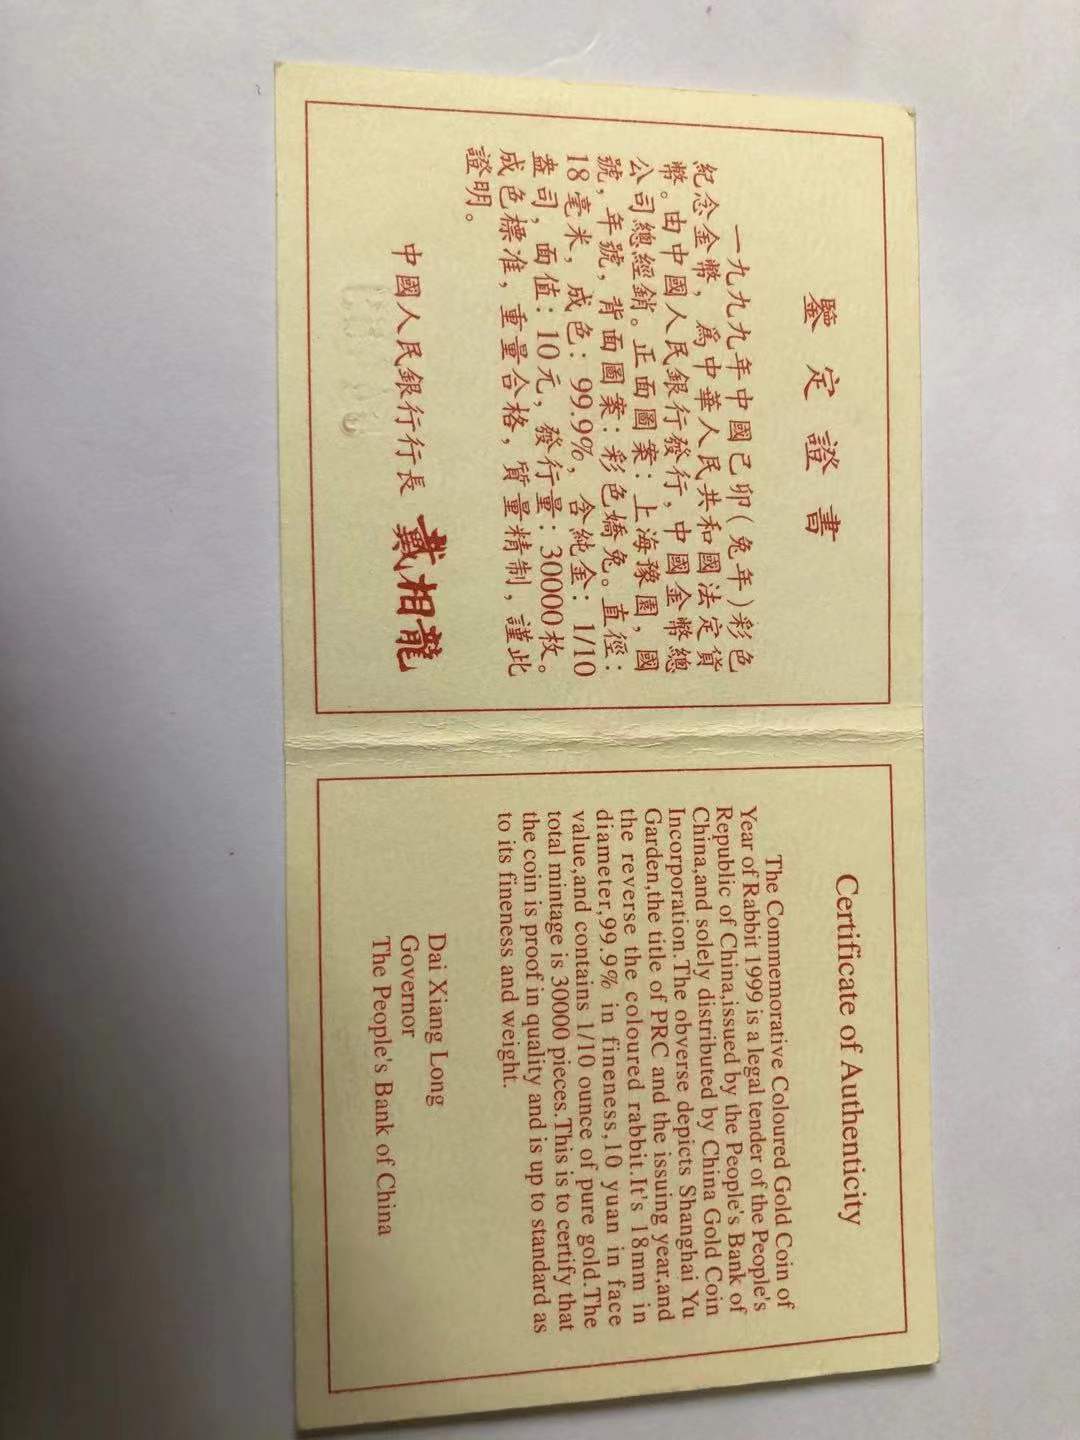 鑒定證書
一九九九年中國己卯(兔年)彩色
紀念金幣，爲中華人民共和國法定貨
幣。由中國人民銀行發行，中國金幣總
公司總經銷。正面圖案：上海豫園，國
號，年號，背面圖案：彩色嬌兔。直徑：
18毫米，成色：99.9%，含純金：1/10
盎司，面值：10元，發行量：30000枚。
成色標准，重量合格，質量精制，謹此
證明。
中國人民銀行行長 戴相龍
Certificate of Authenticity
The Commemorative Coloured Gold Coin of
Year of Rabbit 1999 is a legal tender of the People's
Republic of China,issued by the People's Bank of
China,and solely distributed by China Gold Coin
Incorporation.The obverse depicts Shanghai Yu
Garden,the title of PRC and the issuing year,and
the reverse the coloured rabbit.It's 18mm in
diameter,99.9% in fineness,10 yuan in face
value,and contains 1/10 ounce of pure gold.The
total mintage is 30000 pieces.This is to certify that
the coin is proof in quality and is up to standard as
to its fineness and weight.
Dai Xiang Long
Governor
The People's Bank of China